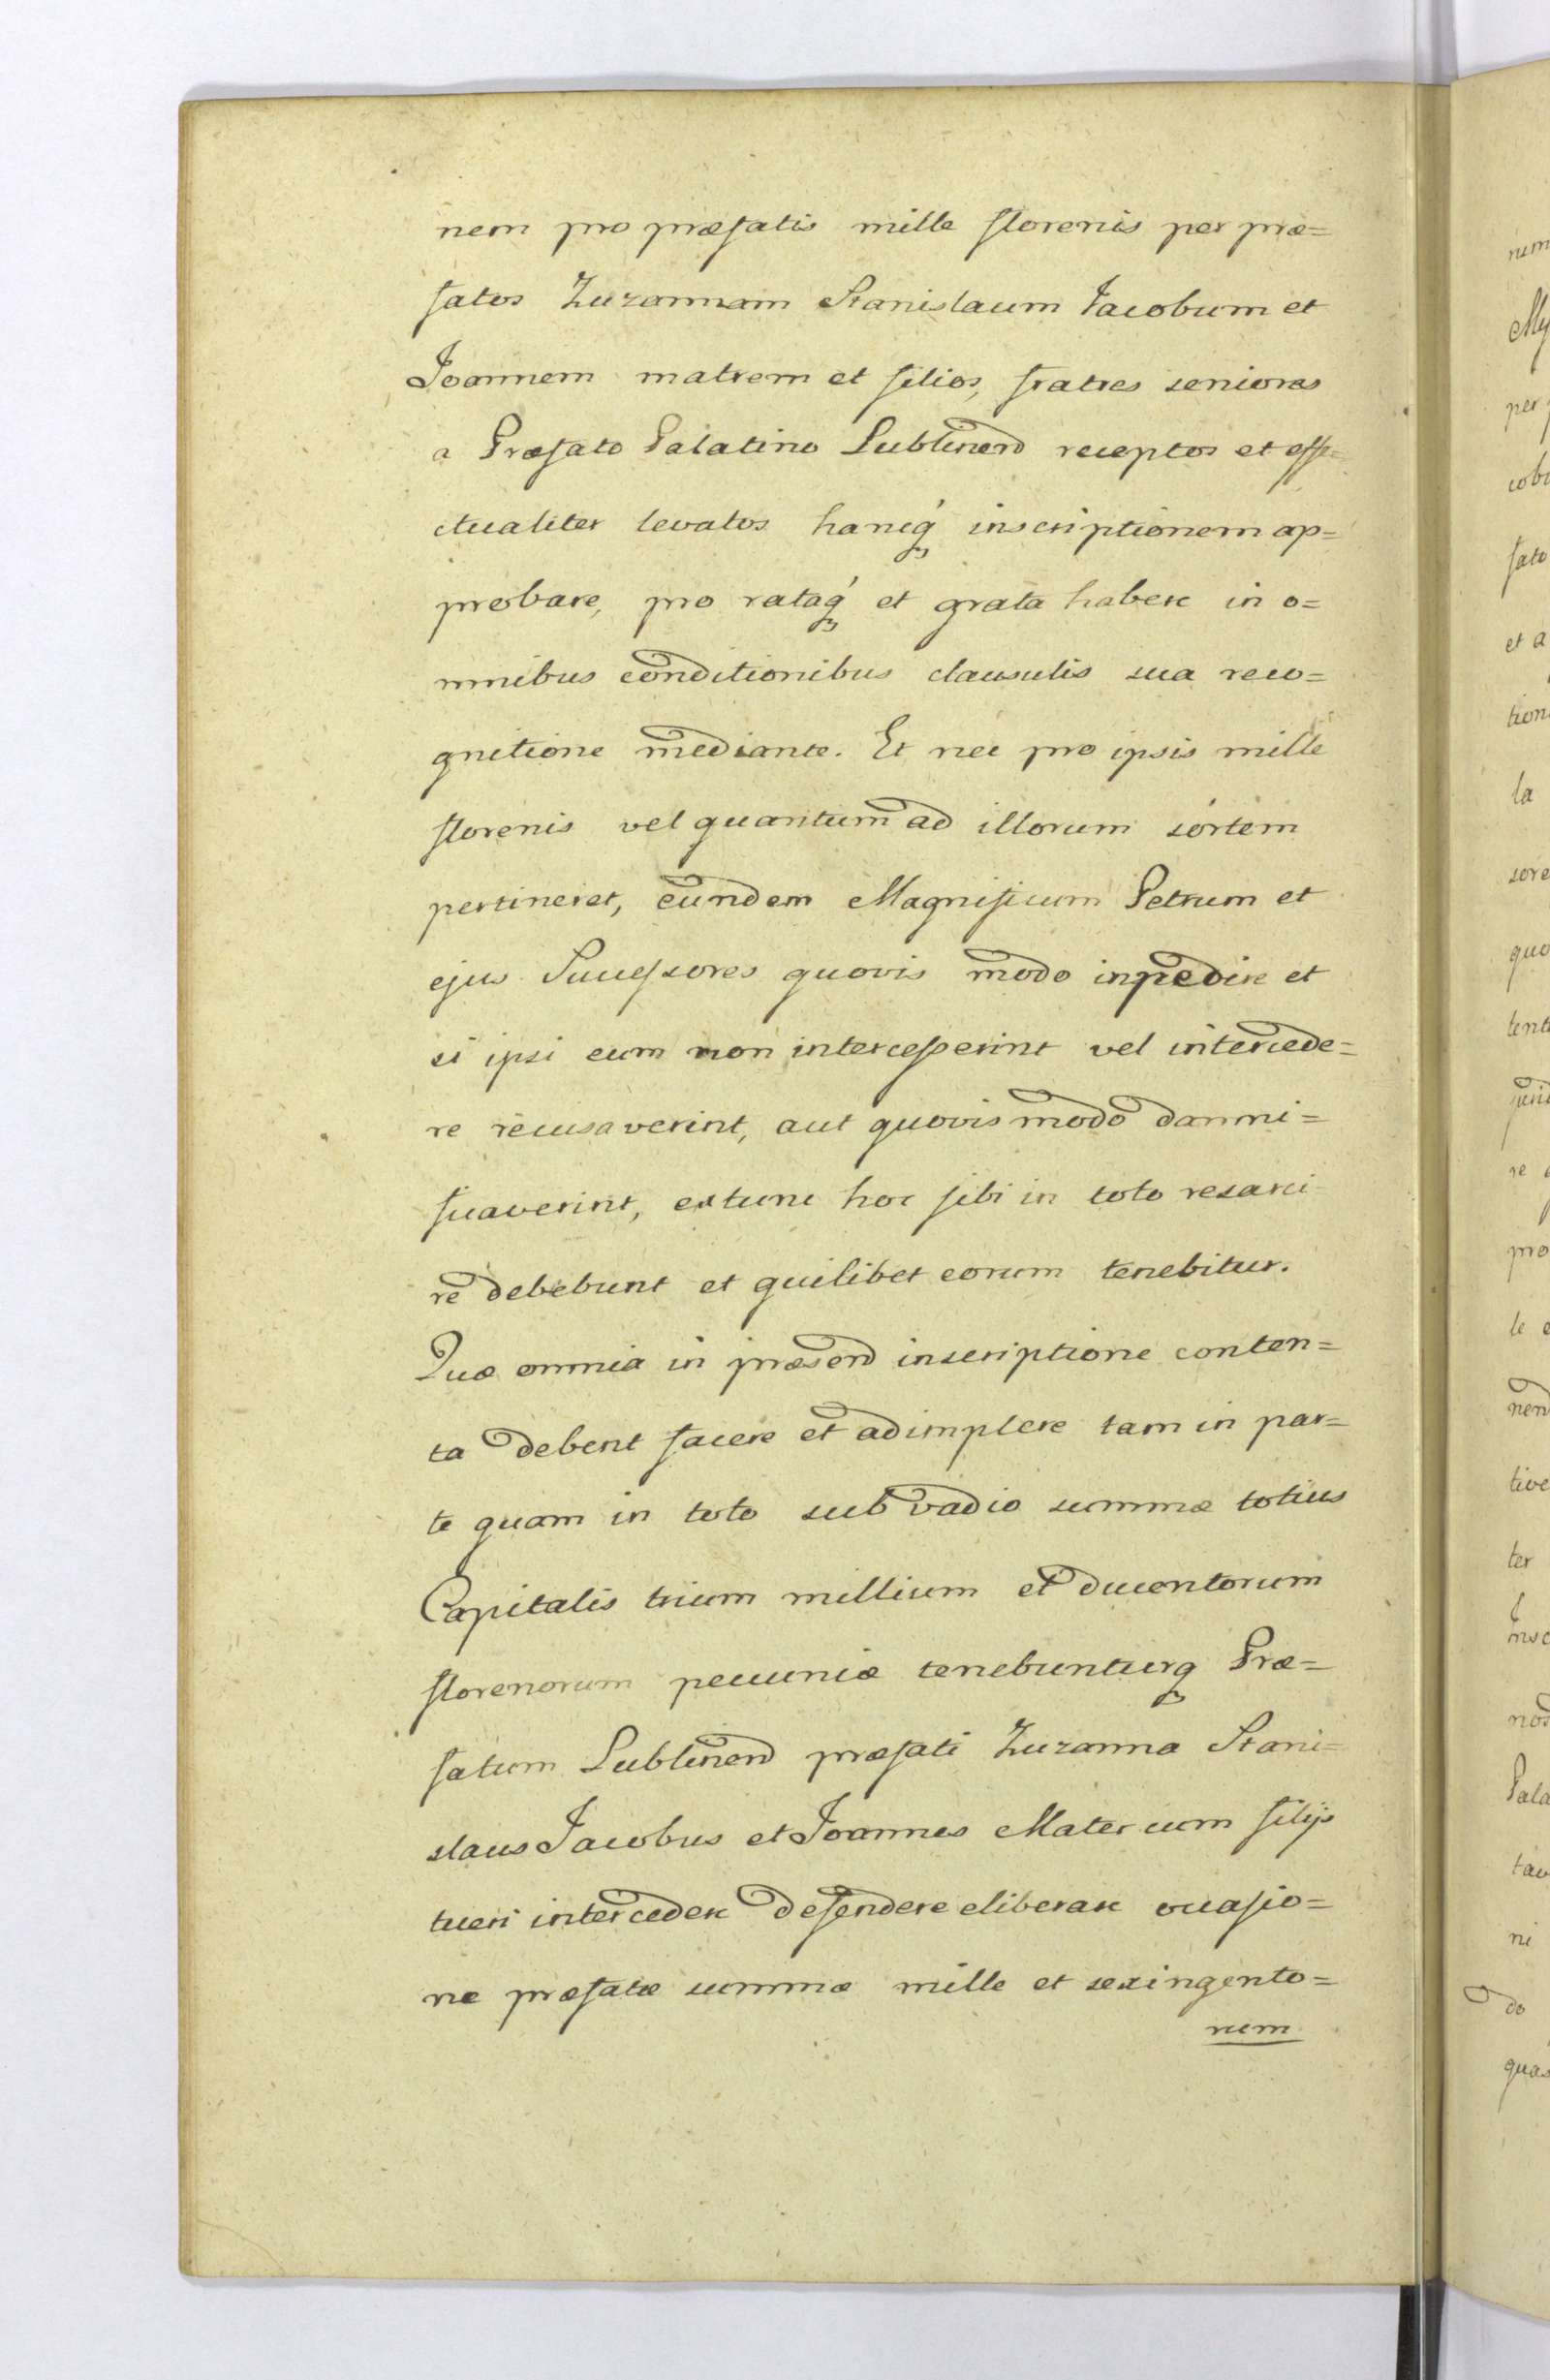 nem pro præfatis mille florenis per præ=
fatos Zuzannam Stanislaum Jacobum et
Joannem matrem et filios, fratres seniores
a Præfato Palatino Lublinen̄ receptos et effe=
ctualiter levatos hancq́ꝫ inscriptionem ap=
probare, pro rataq́ꝫ et grata habere in o=
mnibus conditionibus clausulis sua reco=
gnitione mediante. Et nec pro ipsis mille
florenis vel quantum ad illorum sortem
pertineret, eundem Magnificum Petrum et
ejus Successores quovis modo inpedire et
si ipsi eum non intercesserint vel intercede=
re recusaverint, aut quovis modo damni=
ficaverint, extunc hoc sibi in toto resarci
re debebunt et quilibet eorum tenebitur.
Quæ omnia in præsen̄ inscriptione conten=
ta debent facere et adimplere tam in par=
te quam in toto sub vadio summæ totius
Capitalis trium millium et ducentorum
florenorum pecuniæ tenebunturqꝫ Præ=
fatum Lublinen̄ præfati Zuzanna Stani=
slaus Jacobus et Joannes Mater cum filijs
tueri intercedere defendere eliberare occasio=
ne præfatæ summæ mille et sexingento=
rum